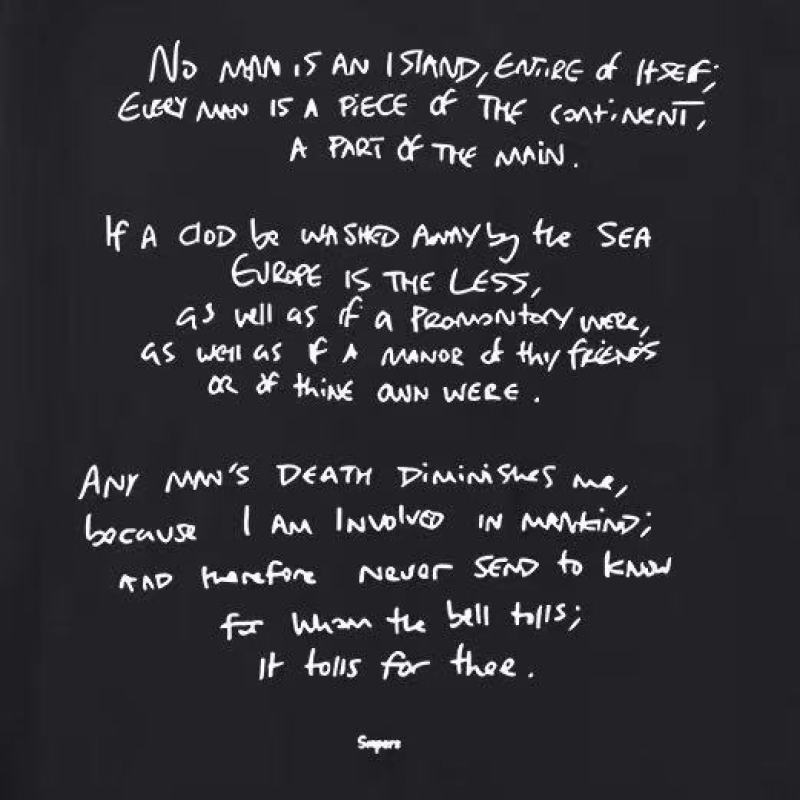 No MAN iS AN ISTAND, ENTIRE of ItSEF;
EVERY MAN IS A PIECE OF THE CONtiNENT,
A PART OF THE MAIN.
If A CloD be WASHED AWAY by the SEA
EUROPE IS THE LESS,
as well as if a PROMONtORY WERE,
as well as IF A MANOR of thy friENDS
OR OF thiNE OWN WERE.
ANY MAN'S DEATH DiminiShes me,
because I AM INVOlvED IN MANkiND;
AND therefore NEVER SEND to kNOW
for whom the bell tolls;
it tolls for thee.